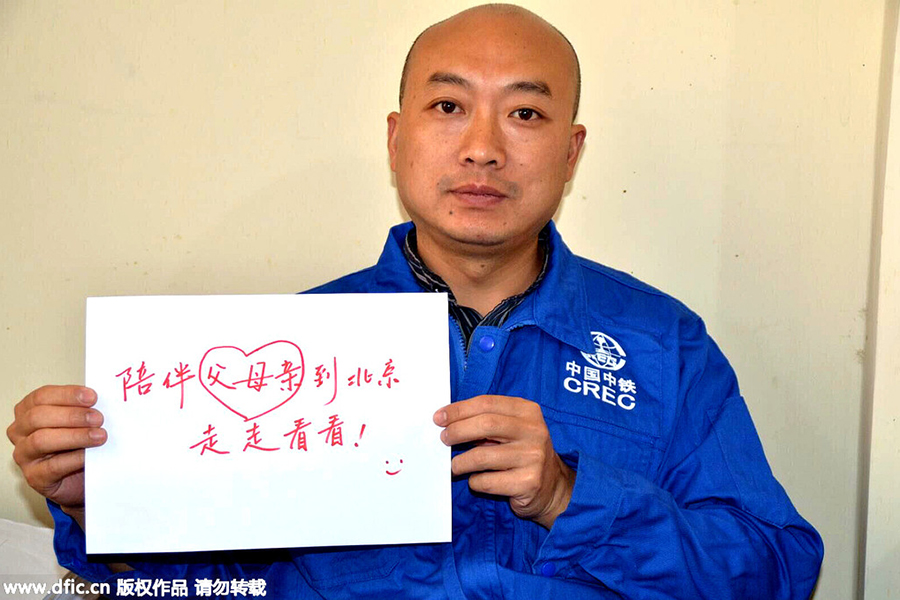 陪伴父母亲到北京
走走看看!
中国中铁
CREC
www.dfic.cn 版权作品 请勿转载